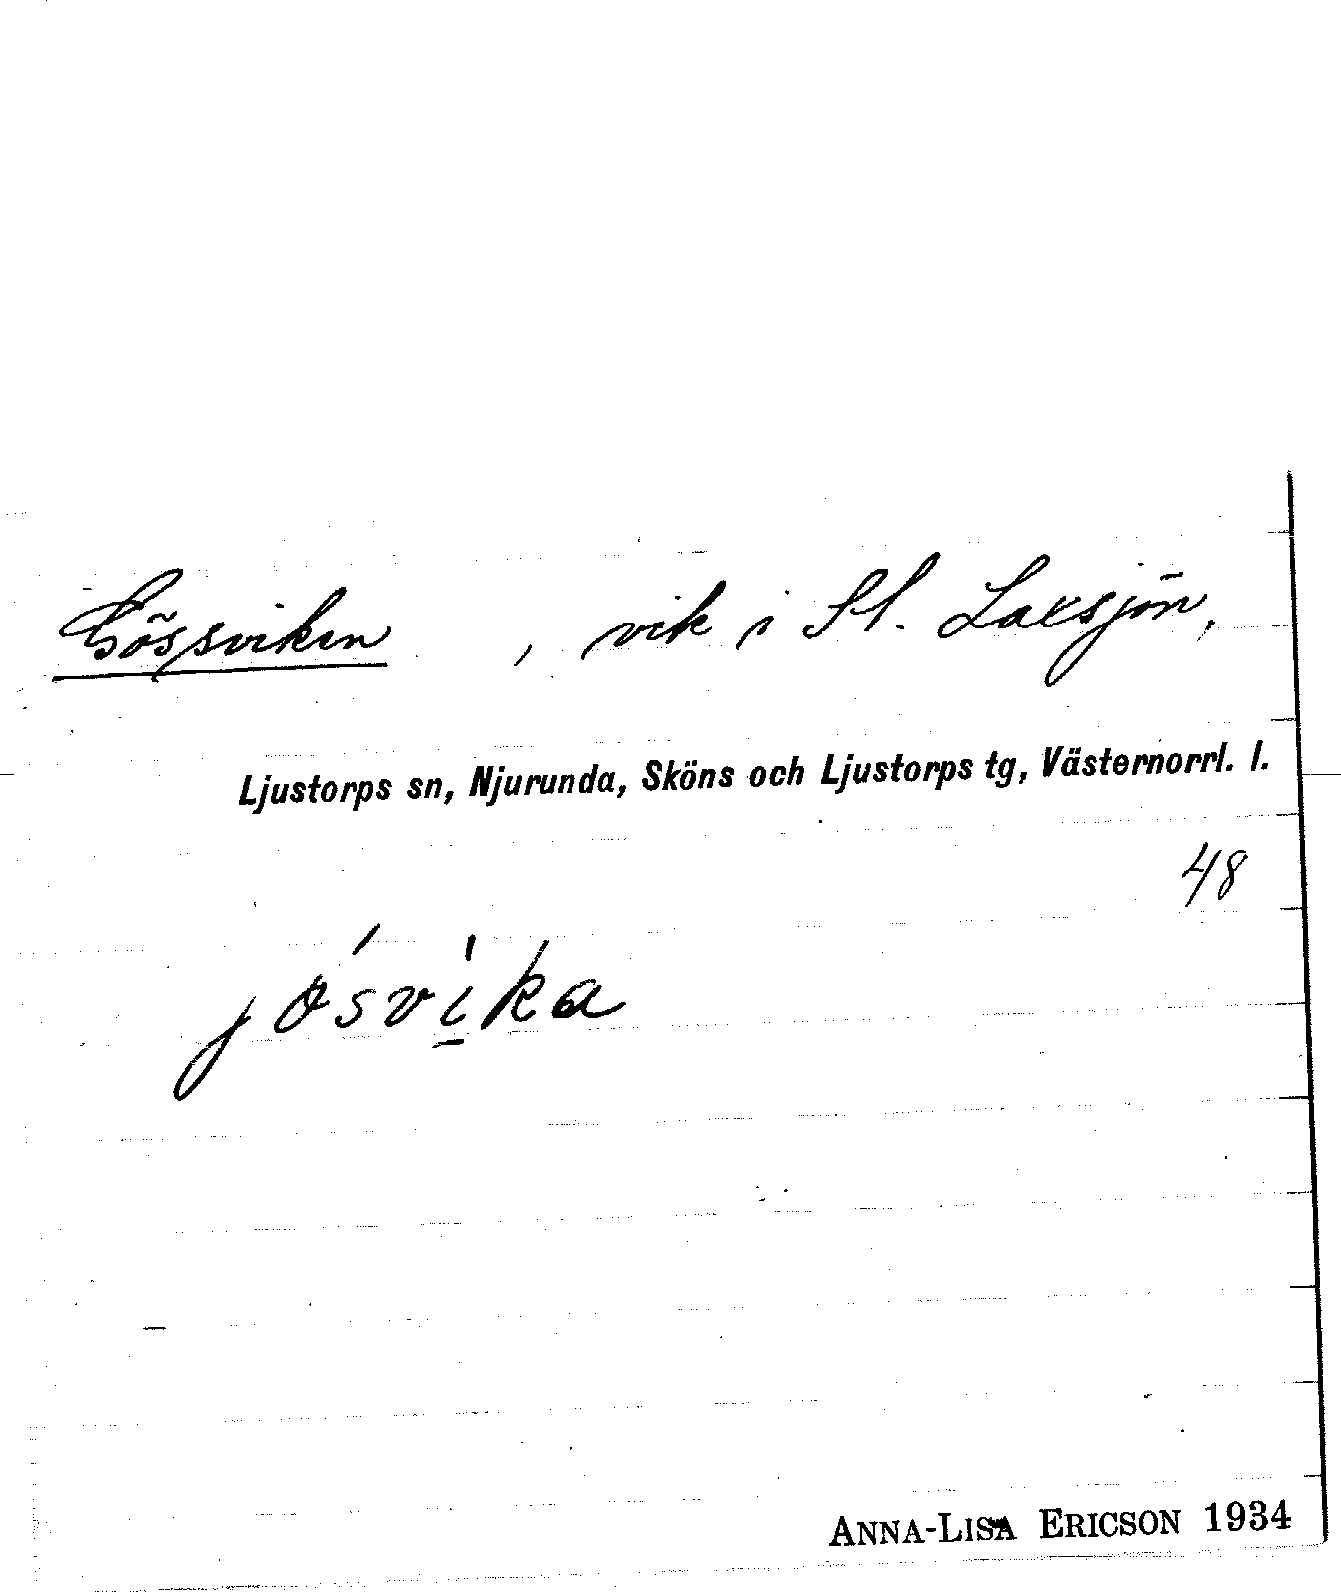 Gössviken , vik i St. Laxsjön,
Ljustorps sn, Njurunda, Sköns och Ljustorps tg, Västernorrl. l.
48
jǿsvì̠ka
ANNA-LISA ERICSON 1934